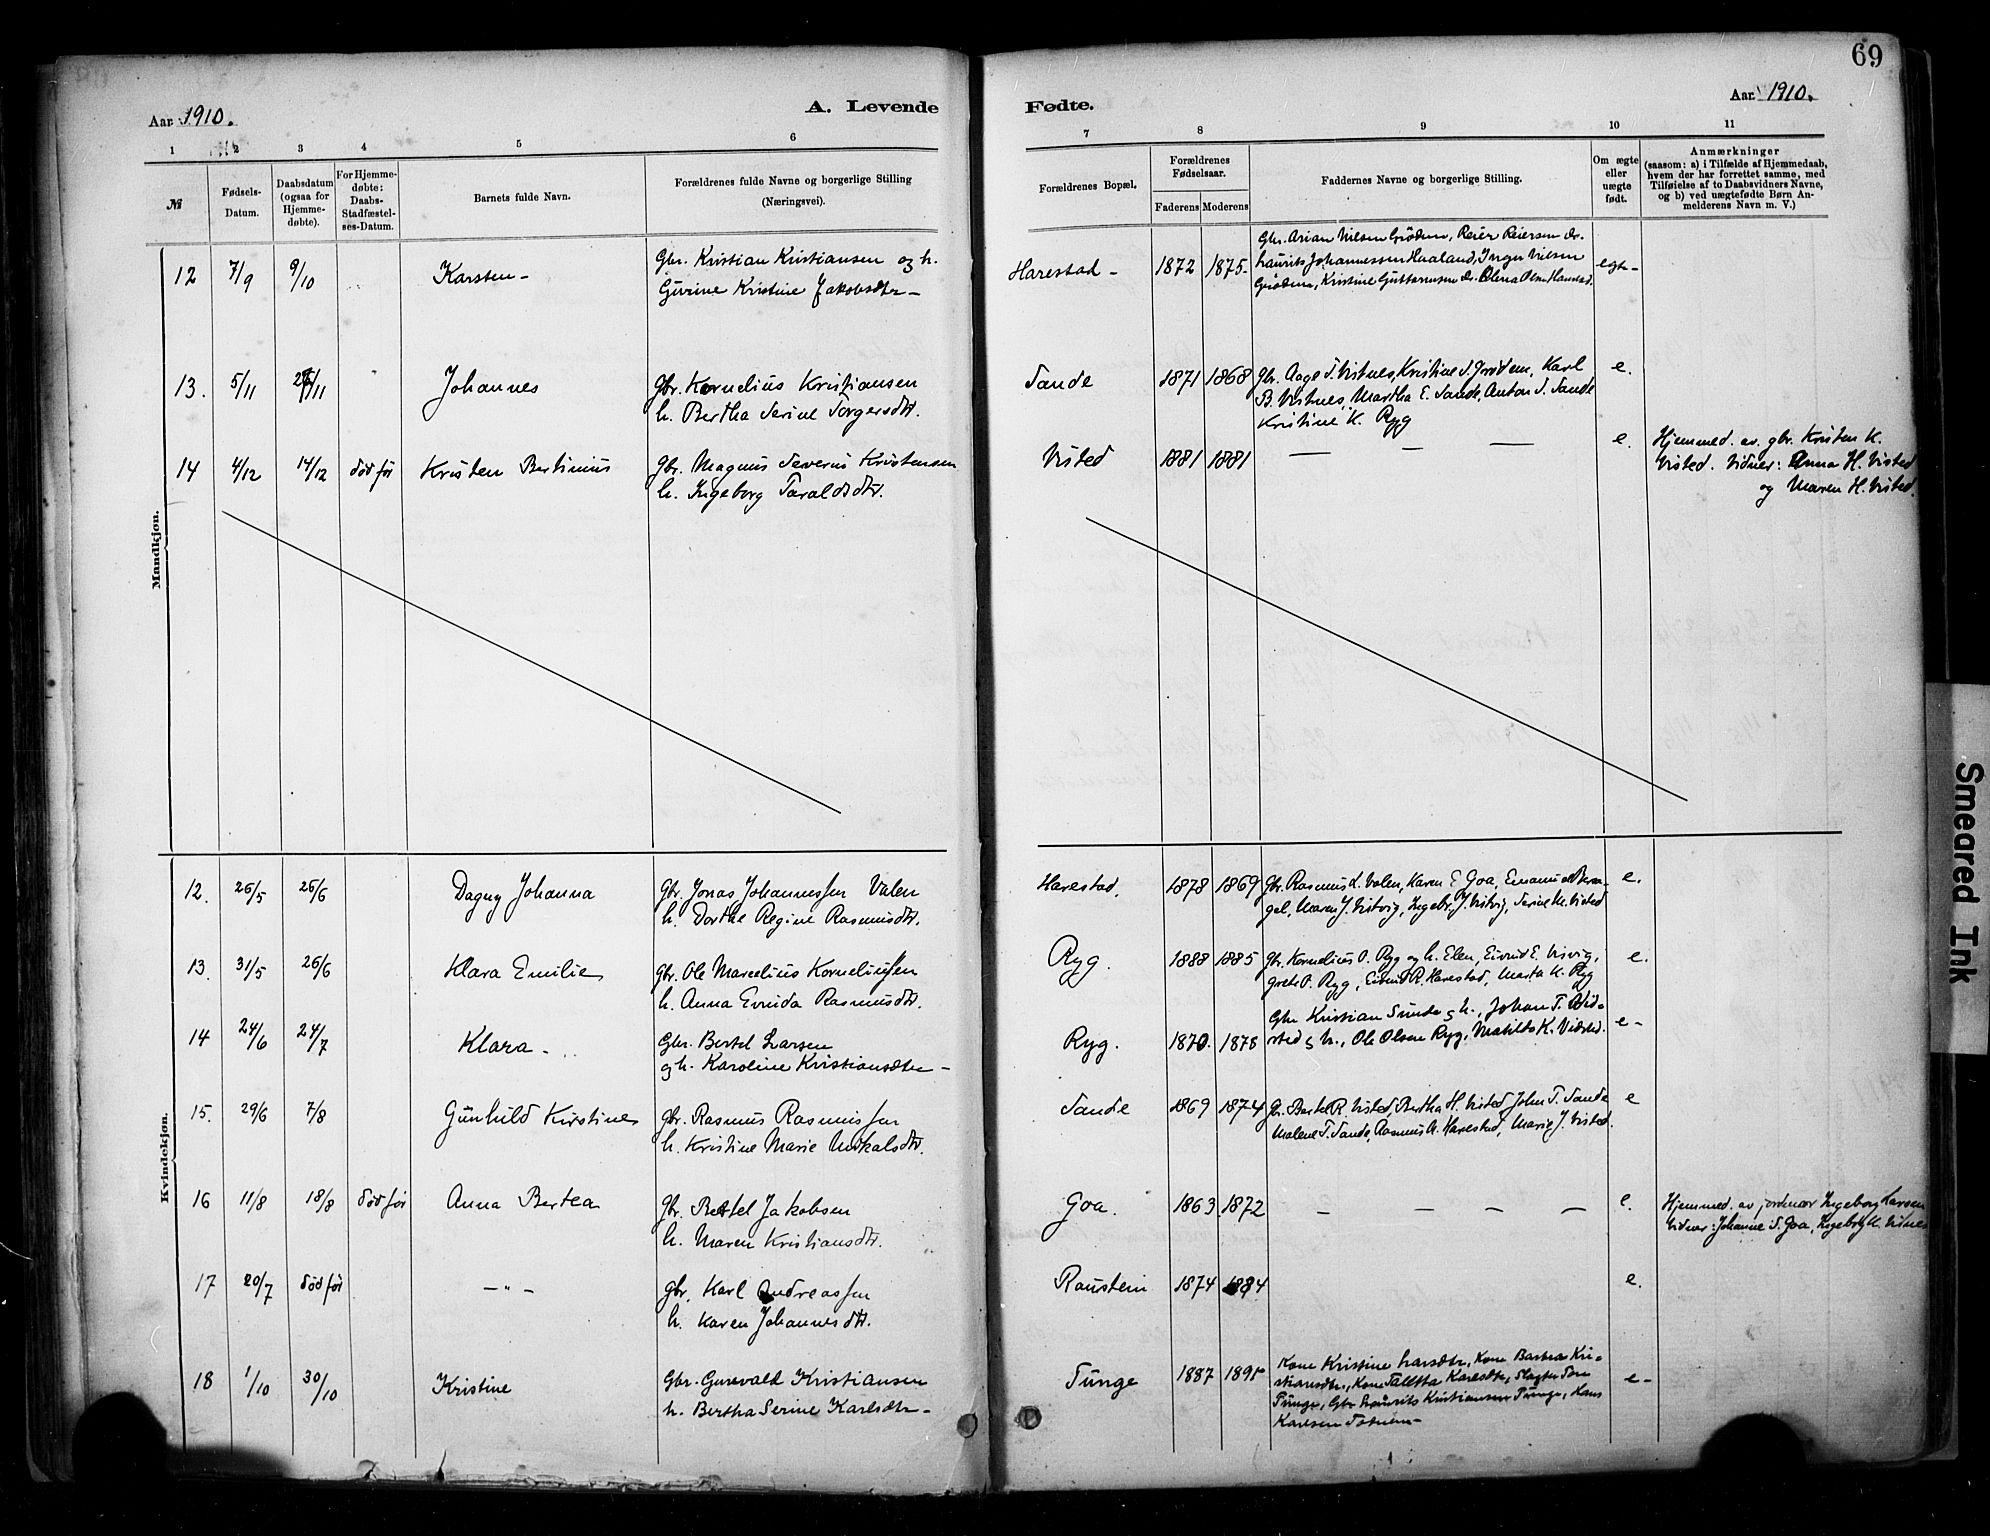 69
Aar 1910.
A. Levende
Fødte.
Aar 1910.
1 2 3 4 5 6 7 8 9 10 11
№
Fødsels-Datum.
Daabsdatum (ogsaa for Hjemmedøbte).
For Hjemmedøbte: Daabs-Stadfæstelses-Datum.
Barnets fulde Navn.
Forældrenes fulde Navne og borgerlige Stilling
(Næringsvei).
Forældrenes Bopæl.
Forældrenes Fødselsaar.
Faderens Moderens
Faddernes Navne og borgerlige Stilling.
Om ægte eller uægte født.
Anmærkninger
(saasom: a) i Tilfælde af Hjemmedaab,
hvem der har forrettet samme, med
Tilføielse af to Daabsvidners Navne,
og b) ved uægtefødte Børn Anmelderens Navn m. V.)
Mandkjøn.
12 7/9 9/10 Karsten -
Gbr. Kristian Kristiansen og h.
Kristine Jakobsdtr -
Harestad - 1872 1875
Gbr. Arian Nilsen Grødem, Reier Reiersen
Laurits Johannessen Haaland, Inger Nilsen
Grødem, Kristine
egte -
13. 5/11 /11 Johannes
gbr. Kornelius Kristiansen
h. Bertha Serine Torgersdtr.
Sande 1871 1868
gbr. Aage T. Vistnes, Kristine S. Grødem, Karl
B. Vistnes, Martha E. Sande, Anton J. Sande
Kristine K. Ryg
e.
14 4/12 14/12 død før Kristen Bertinius
gbr. Magnus Severin Kristensen
h. Ingeborg Taraldsdtr.
Visted 1881 1881 — — — e.
Hjemmed. av gbr. Kristen K.
Visted. Vidner: Anna H. Visted
og Maren H. Visted.
Kvindekjøn.
12. 26/5 26/6 Dagny Johanna
gbr. Jonas Johannessen Valen
h. Dorthe Regine Rasmusdtr.
Harestad. 1878 1869
gbr. Rasmus L. Valen, Karen E Goa,
Maren J. Vistvig, Ingebr. J. Vistvig, Serine M. Visted
e.
13. 31/5 26/6 Klara Emilie
gbr. Ole Marcelius Korneliussen
h. Anna Rasmusdtr.
Ryg. 1888 1885
gbr. Kornelius O. Ryg og h. Elen, Eivind E. Visvig,
Grete O. Ryg, Eivind R. Harestad, Marta K. Ryg
e.
14 24/6 24/7 Klara -
Gbr. Bertel Larsen
og h. Karoline Kristiansdtr -
Ryg. 1870. 1878
Gbr Kristian Sunde h., Johan T. Vid=
sted h., Ole Olsen Ryg, Matilde K. Vidsted.
e -
15. 29/6 7/8 Gunhild Kirstine
gbr. Rasmus Rasmussen
h. Kristine Marie Mikalsdtr.
Sande 1869 1874
gbr. Bertel R. Visted, Bertha H. Visted John T. Sande
Malene T. Sande, Rasmus A. Harestad, Marie J. Visted.
e
16 11/8 18/8 død før Anna Bertea
gbr. Bertel Jakobsen
h. Maren Kristiansdtr.
Goa. 1863 1872 — — — — e.
Hjemmed. av jordmor Ingeborg Larsen
Vidner: Johanne S. Goa, Ingeborg
17 20/7 død før — " —
gbr. Karl Andreassen
h. Karen Johannesdtr.
Raustein 1874 1884 e.
18 1/10 30/10 Kristine
Gbr. Gunvald Kristiansen
h. Bertha Serine Karlsdtr -
Tunge 1887 1891
Kone Kristine Larsdtr, Kone Bertha Kri=
stiansdtr, Kone Karlsdtr,
Tunge, Gbr Laurits Kristiansen Tunge, Hans
Karlsen
e -
Smeared Ink